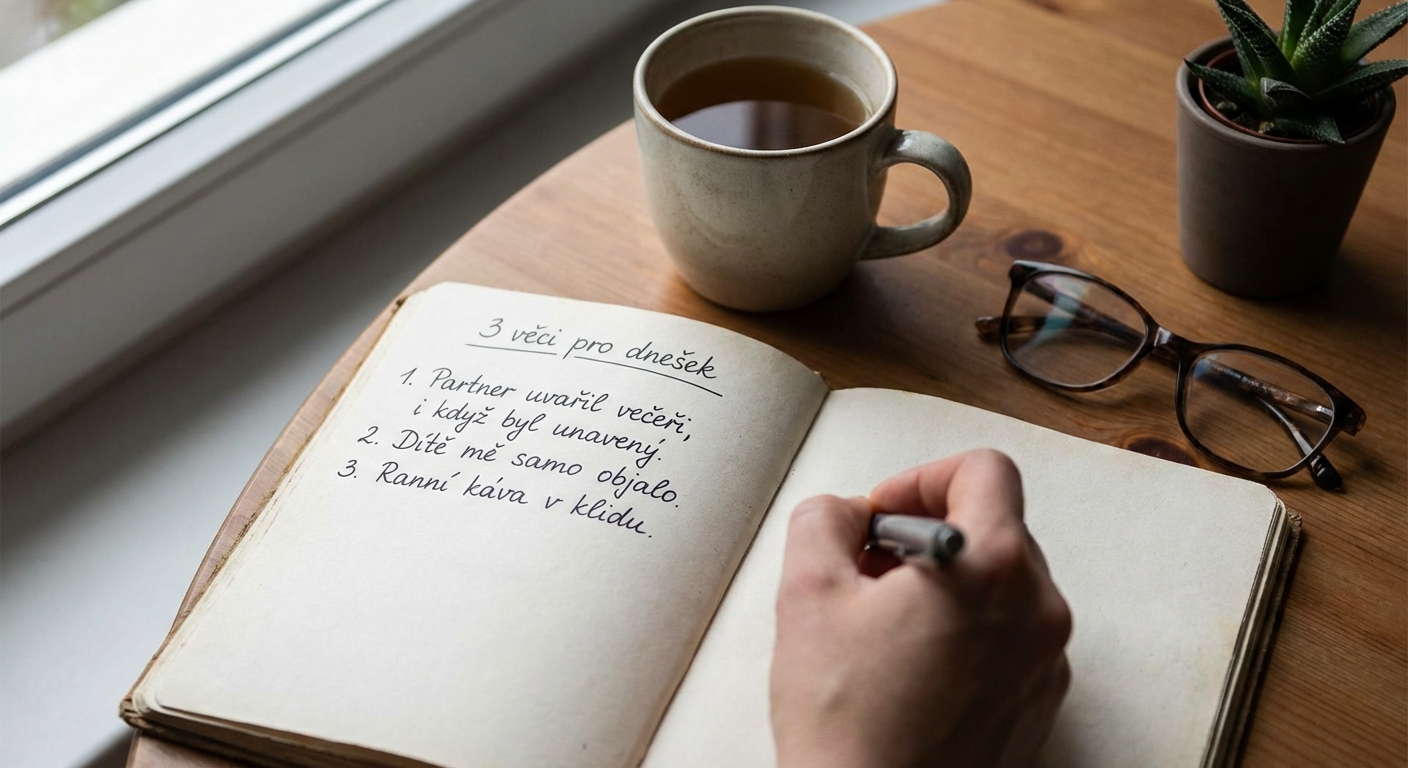 3 věci pro dnešek
1. Partner uvařil večeři,
i když byl unavený.
2. Dítě mě samo objalo.
3. Ranní káva v klidu.